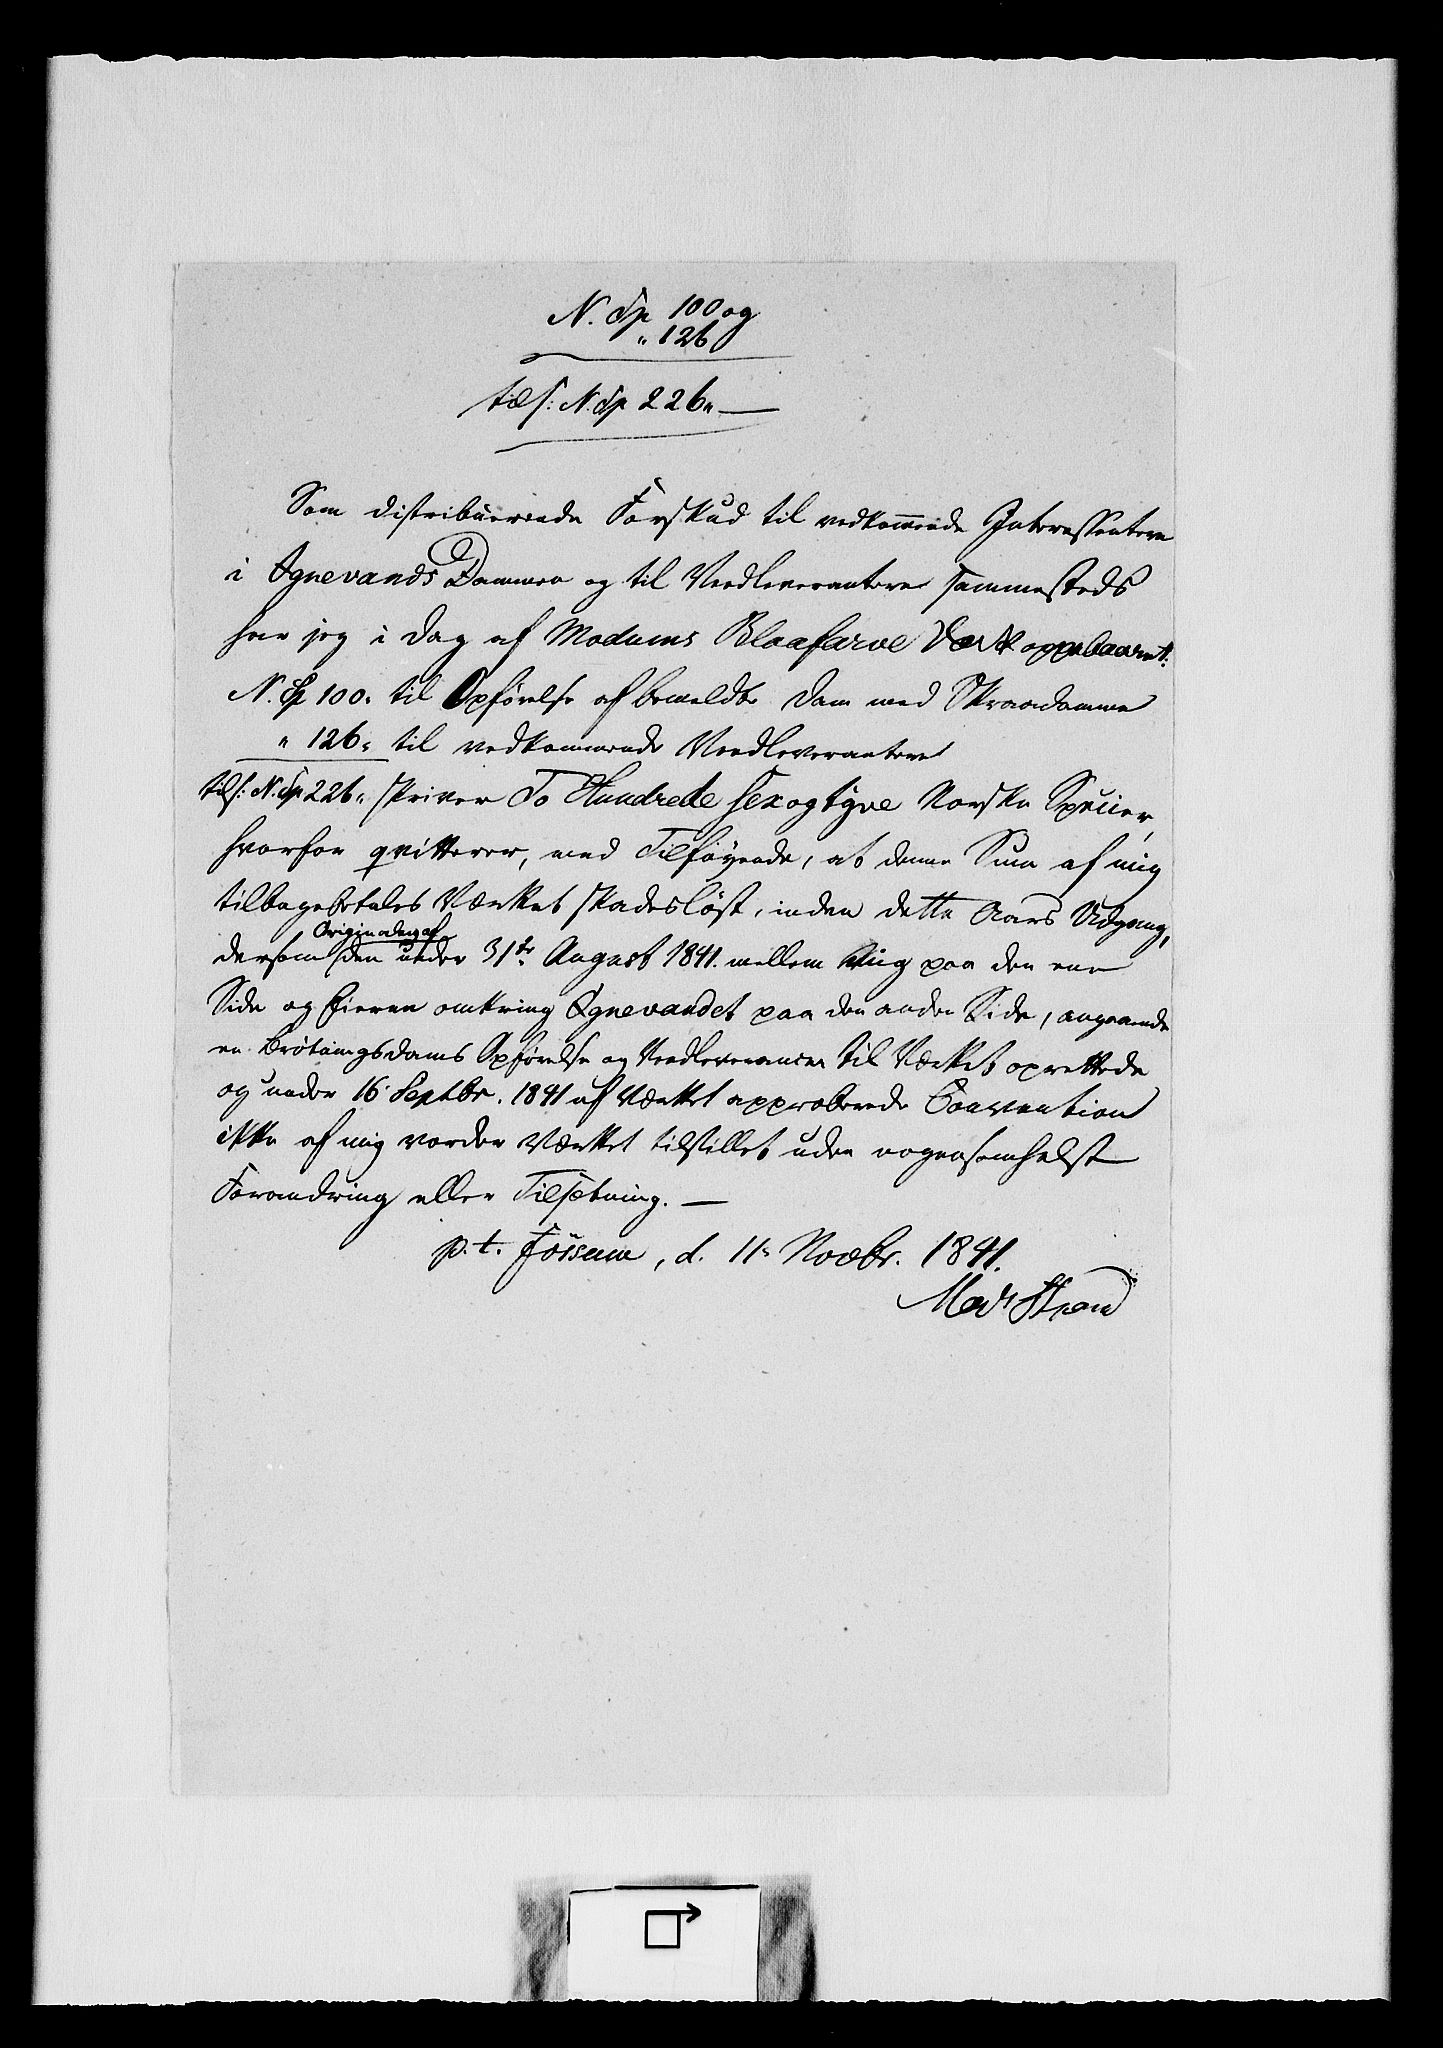 N. Sp 100 og
" 126
tils: N. Sp 226 " —
Som distribuerende Forskud til vedkommende Interessentere
i Ignevands Dammen og til Veedleverantere sammesteds
har jeg i Dag af Modums Blaafarve Værk oppebaaret:
N. Sp 100 " til Opførelse af bemeldte Dam med Skraadamme
" 126 " til vedkommende Veedleverantere
tils: N. Sp 226 " skriver To Hundrede sex og tyve Norske Specier,
hvorfor qvitterer, med Tilføyende, at denne Sum af mig
tilbagebetales Værket skadesløst, inden dette Aars Udgang,
Originalen af
dersom den under 31te August 1841. mellem mig paa den ene
Side og Eierne omkring Ignevandet paa den anden Side, angaaende
en Brötningsdams Opførelse og Veedleverancer til Værket oprettede
og under 16 Septbr. 1841 af Værket approberede Convention
ikke af mig vorder Værket tilstillet uden nogensomhelst
Forandring eller Tilsætning. —
p. t. Fossum, d. 11 Novbr. 1841.
Mads Strand